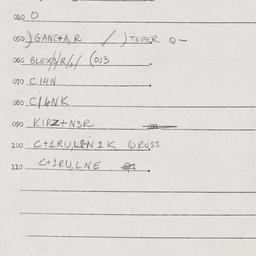 040 O
050 ) GANC+A, R / ) TEPER Q —
060 BLEX (013
070 C14N
080 C/4NK
090 KIRZ+N3R
100 C+1RU, N1K QRUSS
110 C+1RU, LNE